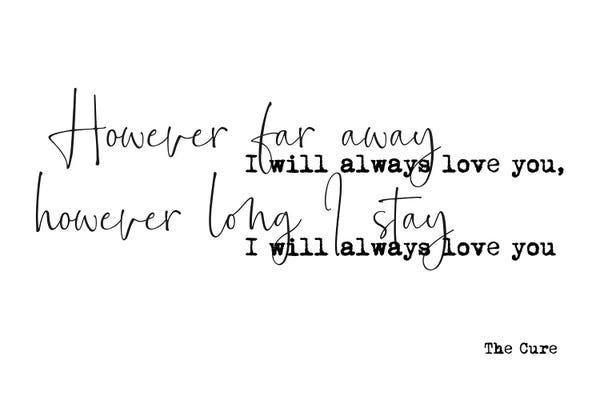 However far away
I will always love you,
however long I stay
I will always love you
The Cure